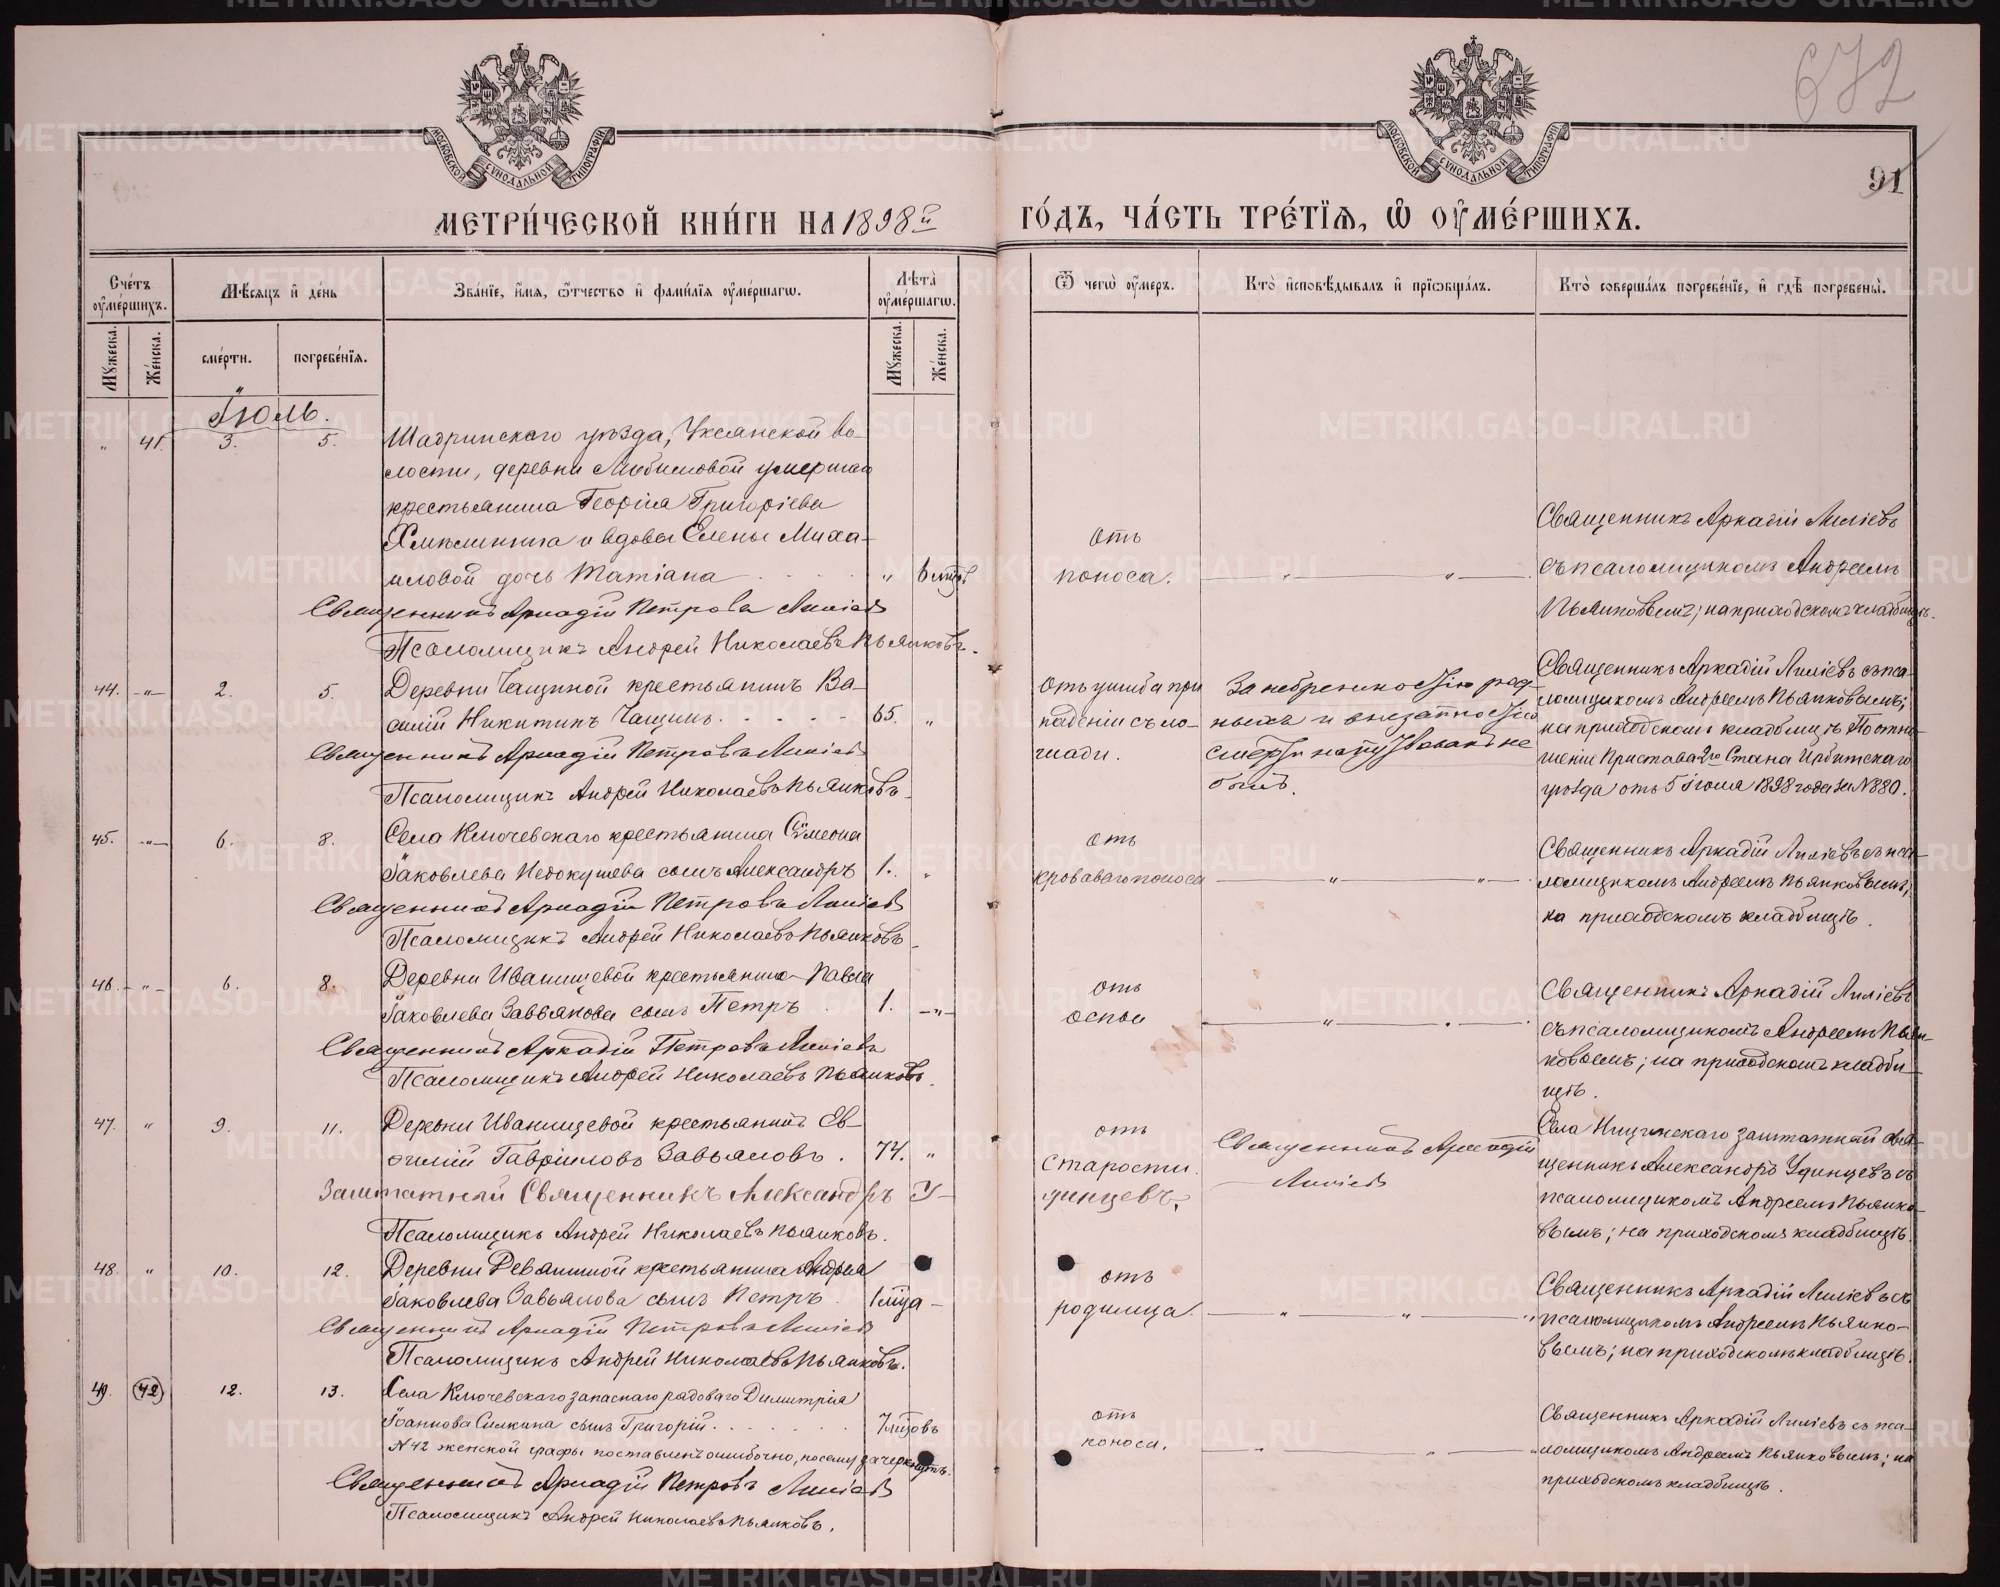 672
91
МОСКОВСКОЙ СѴНОДАЛЬНОЙ ТИПОГРАФІИ
МОСКОВСКОЙ СѴНОДАЛЬНОЙ ТИПОГРАФІИ
МЕТРИ́ЧЕСКОЙ КНИ́ГИ НА 1898й ГО́ДЪ, ЧА́СТЬ ТРЕ́ТІѦ, Ѽ ОУ҆МЕ́РШИХЪ.
Сче́тъ оу҆ме́ршихъ.
Мꙋ́жеска.
Же́нска.
Мѣ́сяцъ и҆ де́нь
сме́рти.
погребе́нїѧ.
Зва́нїе, и҆́мѧ, ѻ҆́тчество и҆ фами́лїѧ оу҆ме́ршагѡ.
Лѣ́та оу҆ме́ршагѡ.
Мꙋ́жеска.
Же́нска.
Ѿ чегѡ̀ оу҆́меръ.
Кто̀ и҆сповѣ́дывалъ и҆ прїѡбща́лъ.
Кто̀ соверша́лъ погребе́нїе, и҆ гдѣ̀ погребены̀.
Іюль.
" 41. 3. 5. Шадринскаго уѣзда, Уксянской во-
лости, деревни Любимовой умершаго
крестьянина Георгія Григоріева
Хмѣлинина и вдовы Елены Миха-
иловой дочь Татіана " 6 мцв.
Священникъ Аркадій Петровъ Лиліевъ
Псаломщикъ Андрей Николаевъ Пьянковъ.
Отъ
поноса. " "
Священникъ Аркадій Лиліевъ
съ псаломщикомъ Андреемъ
Пьянковымъ; на приходскомъ кладбищѣ.
44. " 2. 5. Деревни Чащиной крестьянинъ Ва-
силій Никитинъ Чащинъ. 65. "
Священникъ Аркадій Петровъ Лиліевъ
Псаломщикъ Андрей Николаевъ Пьянковъ.
Отъ ушиба при
паденіи съ ло-
шади.
За небрежностію род-
ныхъ и внезапностію
смерти напутствованъ не
былъ.
Священникъ Аркадій Лиліевъ съ пса-
ломщикомъ Андреемъ Пьянковымъ;
на приходскомъ кладбищѣ По отно-
шенію Пристава 2го Стана Ирбитскаго
уѣзда отъ 5 Іюля 1898 года за №880.
45. " 6. 8. Села Ключевскаго крестьянина Сѵмеона
Іаковлева Недокушева сынъ Александръ 1. "
Священникъ Аркадій Петровъ Лиліевъ
Псаломщикъ Андрей Николаевъ Пьянковъ
отъ
кроваваго поноса " "
Священникъ Аркадій Лиліевъ съ пса-
ломщикомъ Андреемъ Пьянковымъ;
на приходскомъ кладбищѣ.
46. " 6. 8. Деревни Иванищевой крестьянина Павла
Іаковлева Завьялова сынъ Петръ 1. "
Священникъ Аркадій Петровъ Лиліевъ
Псаломщикъ Андрей Николаевъ Пьянковъ.
отъ
оспы " "
Священникъ Аркадій Лиліевъ
съ псаломщикомъ Андреемъ Пьян-
ковымъ; на приходскомъ кладби-
щѣ.
47. " 9. 11. Деревни Иванищевой крестьянинъ Ев-
фимій Гавріиловъ Завьяловъ. 74. "
Заштатный Священникъ Александръ У-
динцевъ.
Псаломщикъ Андрей Николаевъ Пьянковъ.
отъ
старости.
Священникъ Аркадій
Лиліевъ
Села Ницинскаго заштатный свя-
щенникъ Александръ Удинцевъ съ
псаломщикомъ Андреемъ Пьянко-
вымъ; на приходскомъ кладбищѣ.
48. " 10. 12. Деревни Ревякиной крестьянина Андрея
Іаковлева Завьялова сынъ Петръ 1 мца -
Священникъ Аркадій Петровъ Лиліевъ
Псаломщикъ Андрей Николаевъ Пьянковъ.
отъ
родимца. " " "
Священникъ Аркадій Лиліевъ съ
псаломщикомъ Андреемъ Пьянко-
вымъ; на приходскомъ кладбищѣ.
49. (42) 12. 13. Села Ключевскаго запаснаго рядоваго Димитрія
Іоаннова Силкина сынъ Григорій. 7 мцовъ
№42 женской графы поставленъ ошибочно, посему зачеркнутъ.
Священникъ Аркадій Петровъ Лиліевъ
Псаломщикъ Андрей Николаевъ Пьянковъ.
отъ
поноса. " "
Священникъ Аркадій Лиліевъ съ пса-
ломщикомъ Андреемъ Пьянковымъ; на
приходскомъ кладбищѣ.
METRIKI.GASO-URAL.RU